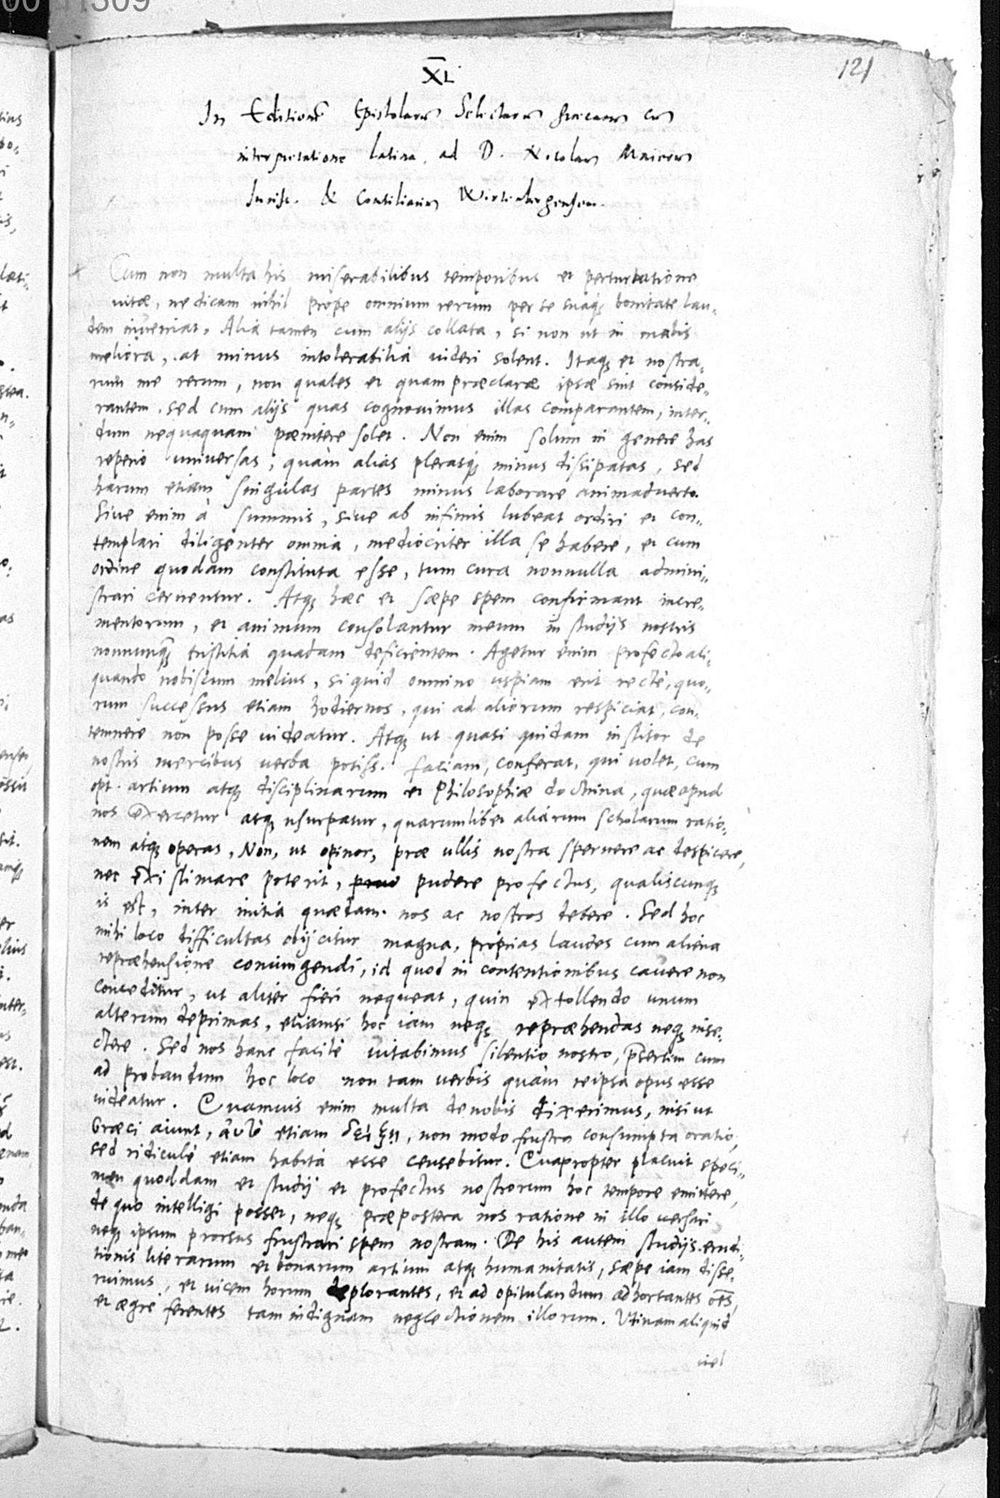 121
XL
In Editionem Epistolarum Selectarum Graecarum cum
interpretatione latina, ad D. Nicolaum Maierum
Iurisc. & Consiliarium Wirtenbergensem.
Cum non multa his miserabilibus temporibus et perturbatione
uitæ, ne dicam nihil prope omnium rerum per se suaq; bonitate lau-
dem inueniat, Alia tamen cum alijs collata, si non ut in malis
meliora, at minus intolerabilia uideri solent. Itaq; et nostra-
rum me rerum, non quales et quam præclaræ ipsæ sint conside-
rantem, sed cum alijs quas cognouimus illas comparantem, inter-
dum nequaquam pœnitere solet. Non enim solum in genere has
reperio uniuersas, quàm alias plerasq; minus dissipatas, sed
harum etiam singulas partes minus laborare animaduerto.
Siue enim à summis, siue ab infimis lubeat ordiri et con-
templari diligenter omnia, mediocriter illa se habere, et cum
ordine quodam constituta esse, tum cura nonnulla admini-
strari cernentur. Atq; hæc et sæpe spem confirmant incre-
mentorum, et animum consolantur meum in studijs nostris
nonnunq; tristitia quadam deficientem. Agetur enim profecto ali-
quando nobiscum melius, si quid omnino uspiam erit rectè, quo-
rum successus etiam hodiernos, qui ad aliorum respiciat, con-
temnere non posse uideatur. Atq; ut quasi quidam institor de
nostris mercibus uerba potiss. faciam, conferat, qui uolet, cum
opt. artium atq; disciplinarum et Philosophiæ doctrina, quæ apud
nos exercetur atq; usurpatur, quarumlibet aliarum scholarum ratio-
nem atq; operas, Non, ut opinor, præ ullis nostra spernere ac despicere,
nec existimare poterit, pudere profectus, qualiscunq;
is est, inter initia quædam nos ac nostros debere. Sed hoc
mihi loco difficultas obijcitur magna, proprias laudes cum aliena
repræhensione coniungendi, id quod in contentionibus cauere non
conceditur, ut aliter fieri nequeat, quin extollendo unum
alterum deprimas, etiamsi hoc iam neq; repræhendas neq; inse-
ctere. Sed nos hanc facilè uitabimus silentio nostro, præsertim cum
ad probandum hoc loco non tam uerbis quàm reipsa opus esse
uideatur. Quamuis enim multa de nobis dixerimus, nisi ut
Græci aiunt, αὐτὸ etiam δείξῃ, non modo frustra consumpta oratio,
sed ridiculè etiam habita esse censebitur. Quapropter placuit speci-
men quoddam et studij et profectus nostrorum hoc tempore emittere,
de quo intelligi posset, neq; præpostera nos ratione in illo uersari
neq; ipsum prorsus frustrari spem nostram. De his autem studijs erudi-
tionis literarum et bonarum artium atq; humanitatis, sæpe iam disse-
ruimus, et uicem horum deplorantes, et ad opitulandum adhortantes oẽs,
et ægrè ferentes tam indignam neglectionem illorum. Utinam aliquid
uel